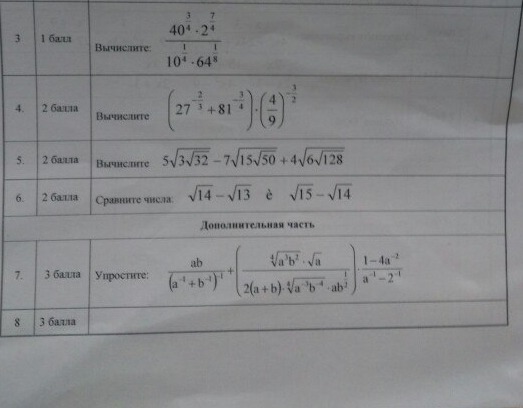 3 1 балл Вычислите: \frac{40^{\frac{3}{4}} \cdot 2^{\frac{7}{4}}}{10^{\frac{1}{4}} \cdot 64^{\frac{1}{8}}}
4. 2 балла Вычислите \left(27^{-\frac{2}{3}} + 81^{-\frac{3}{4}}\right) \cdot \left(\frac{4}{9}\right)^{-\frac{3}{2}}
5. 2 балла Вычислите 5\sqrt{3\sqrt{32}} - 7\sqrt{15\sqrt{50}} + 4\sqrt{6\sqrt{128}}
6. 2 балла Сравните числа: \sqrt{14} - \sqrt{13} è \sqrt{15} - \sqrt{14}
Дополнительная часть
7. 3 балла Упростите: \frac{ab}{(a^{-1} + b^{-1})^{-1}} + \left(\frac{\sqrt[4]{a^3b^2} \cdot \sqrt{a}}{2(a+b) \cdot \sqrt[4]{a^{-3}b^{-4}} \cdot ab^{\frac{1}{2}}}\right) \cdot \frac{1 - 4a^{-2}}{a^{-1} - 2^{-1}}
8 3 балла